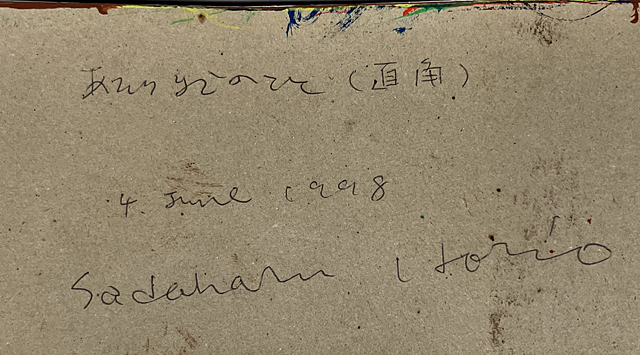 あたりまえのこと（直角）
4. June 1998
Sadaharu Horio